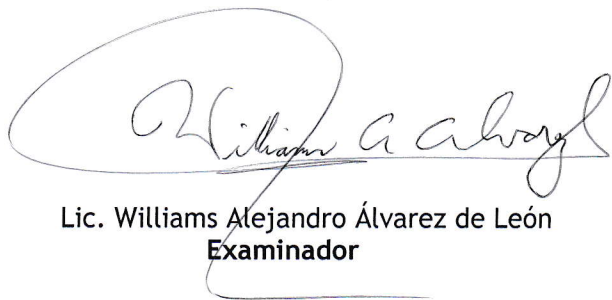 Williams A Alvarez
Lic. Williams Alejandro Álvarez de León
Examinador